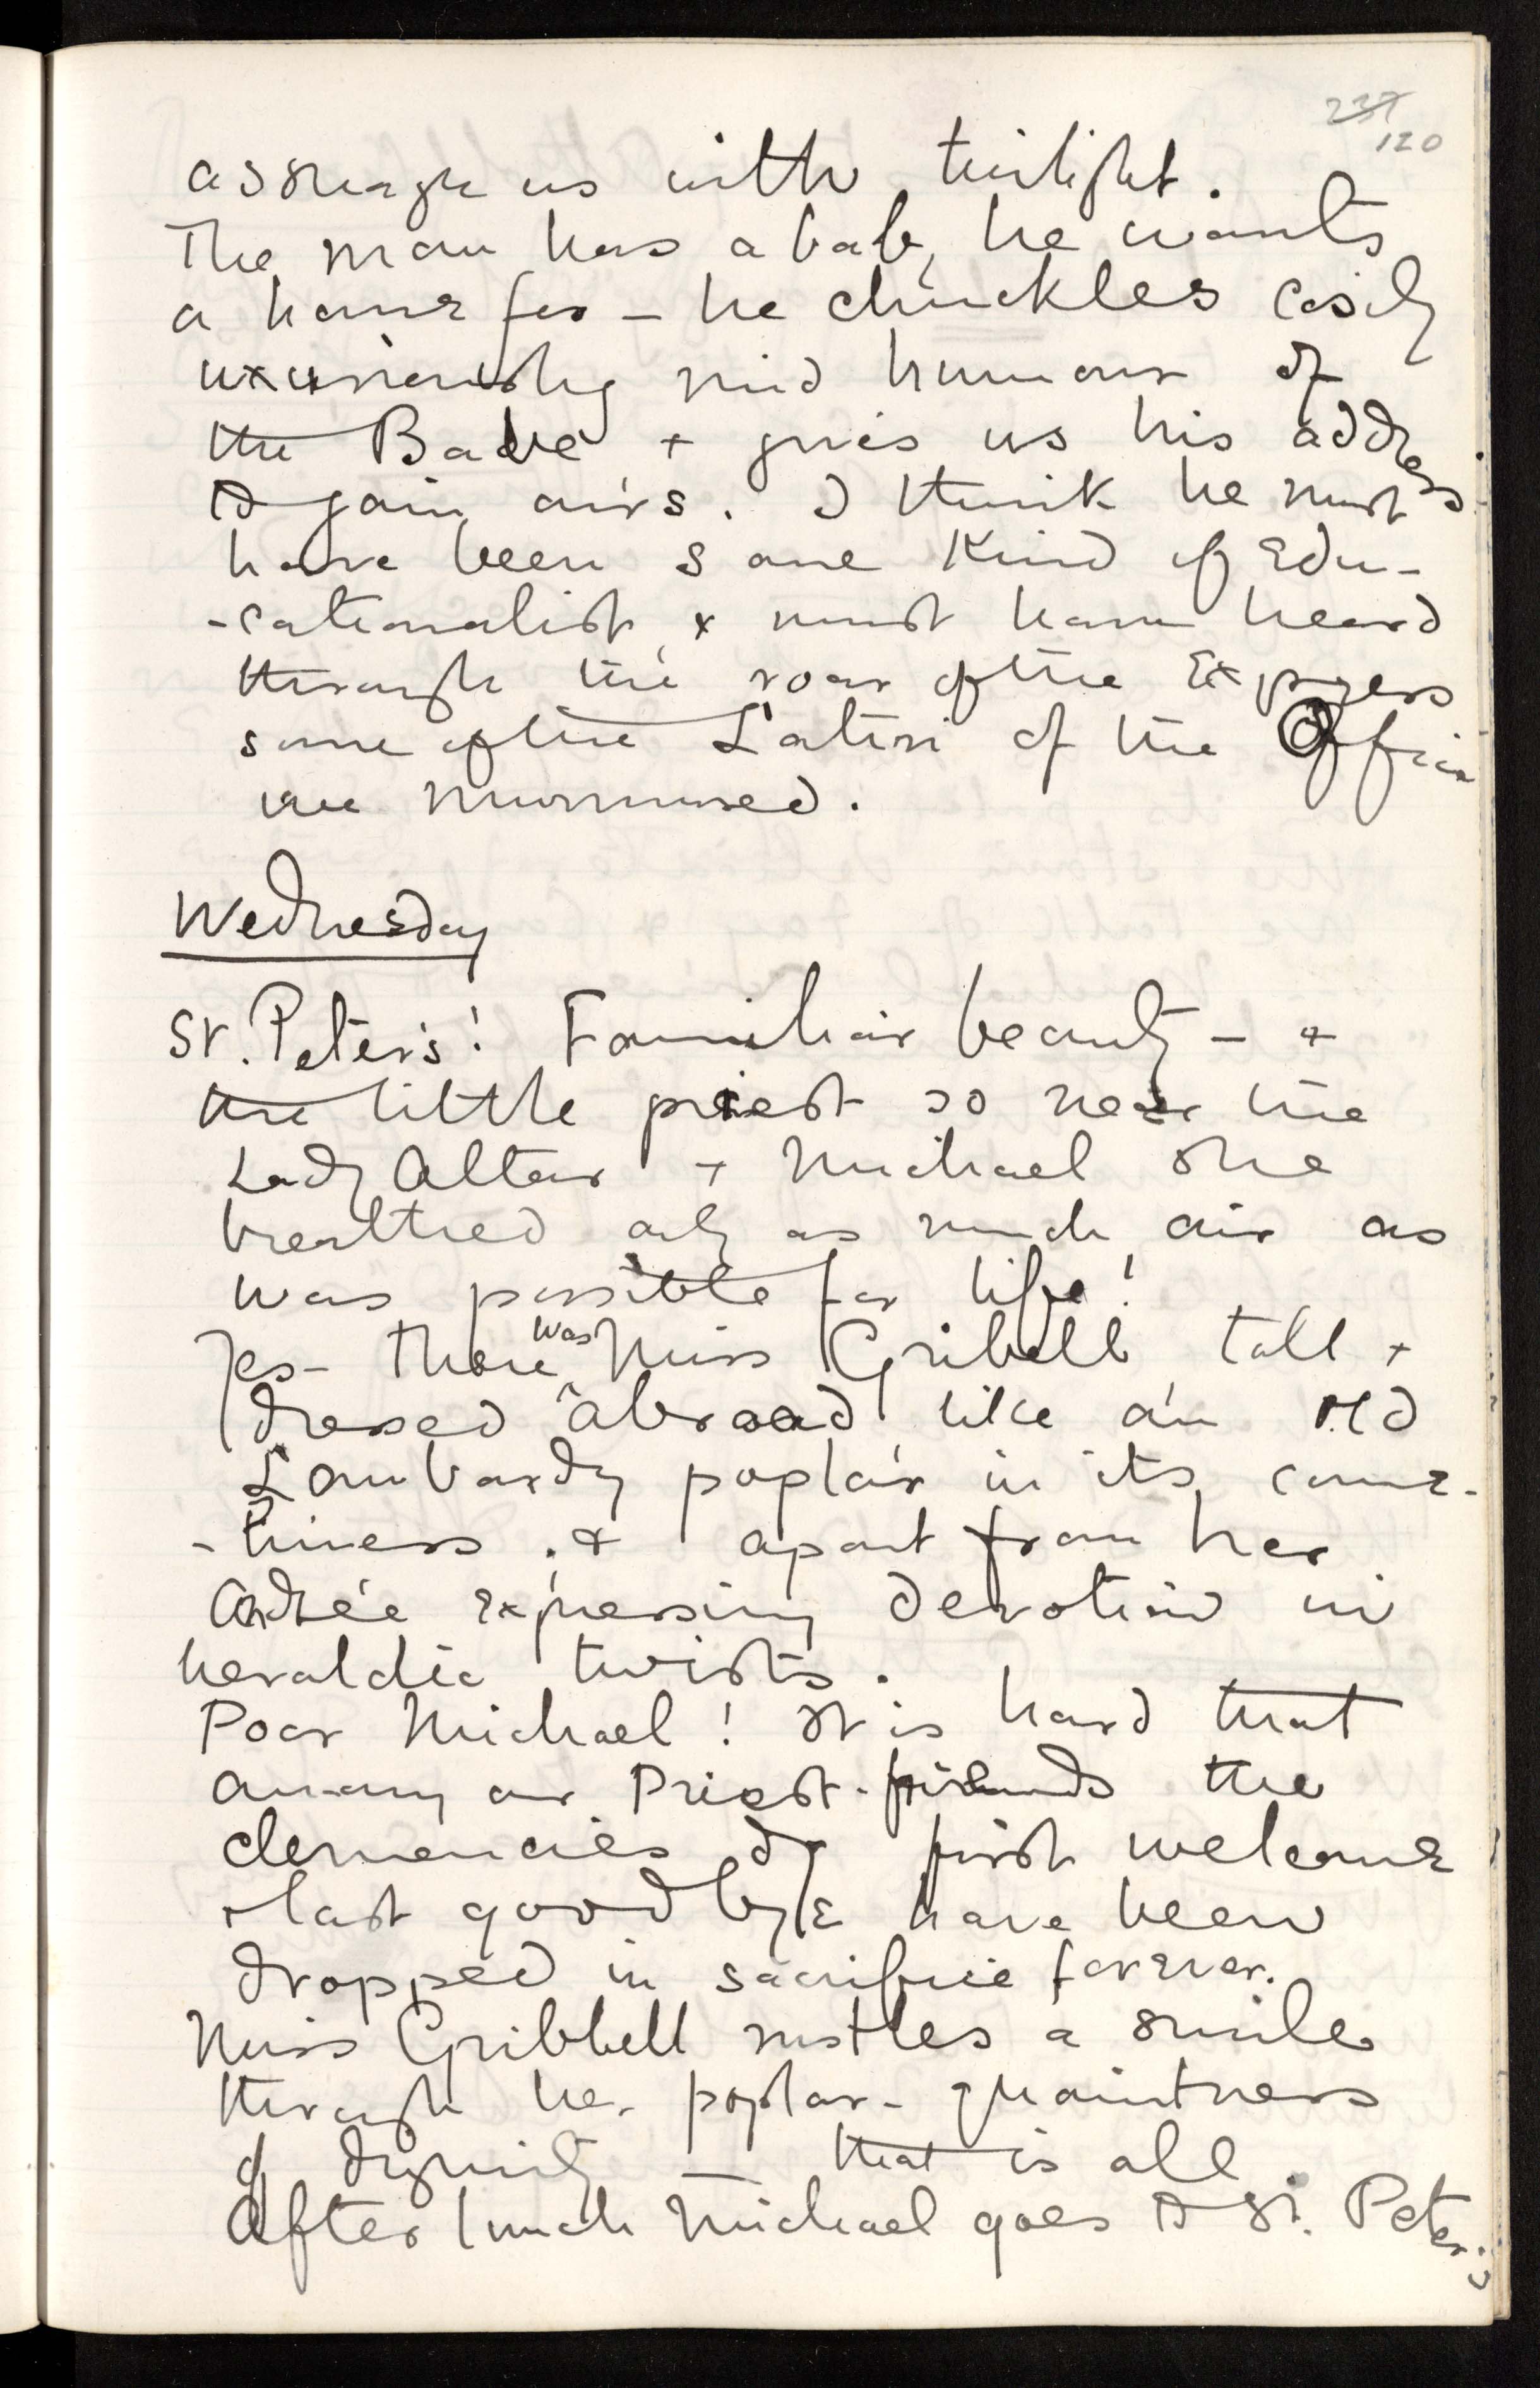 237
120
assuage us with twilight.
The man has a bab, he wants
a home for – he chuckles easily
uxoriously mid humour of
the Babe + gives us his address
to gain ours. I think he must
have been some kind of Edu-
-cationalist & must have heard
through the roar of the Express
some of the Latin of the Office
we murmured.
Wednesday
St. Peter's! Familiar beauty – +
the little priest so near the
Lady Altar + Michael she
breathed only as much air as
was possible for life!
Yes – there was Miss Gribbell tall +
dressed abroad like an old
Lombardy poplar in its come-
-liness. & apart from her
André expressing devotion in
heraldic twists.
Poor Michael! It is hard that
among our Priest-friends the
clemencies of first welcome
+ last goodbye have been
dropped in sacrifice forever.
Miss Gribbell rustles a smile
through her poplar-quaintness
of dignity — that is all.
After lunch Michael goes to St. Peter's